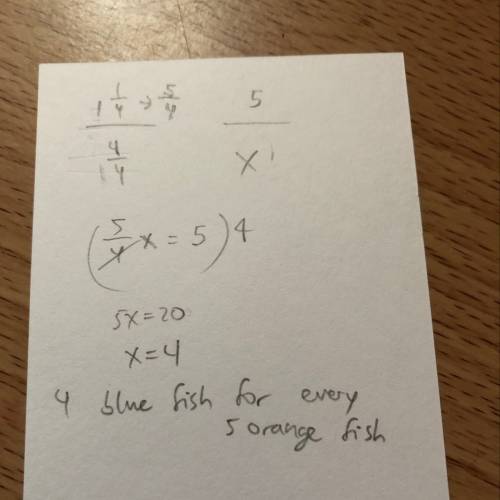 1 1/4 → 5/4     5
4/4     x
(5/4 x = 5)4
5x=20
x=4
4 blue fish for every
5 orange fish